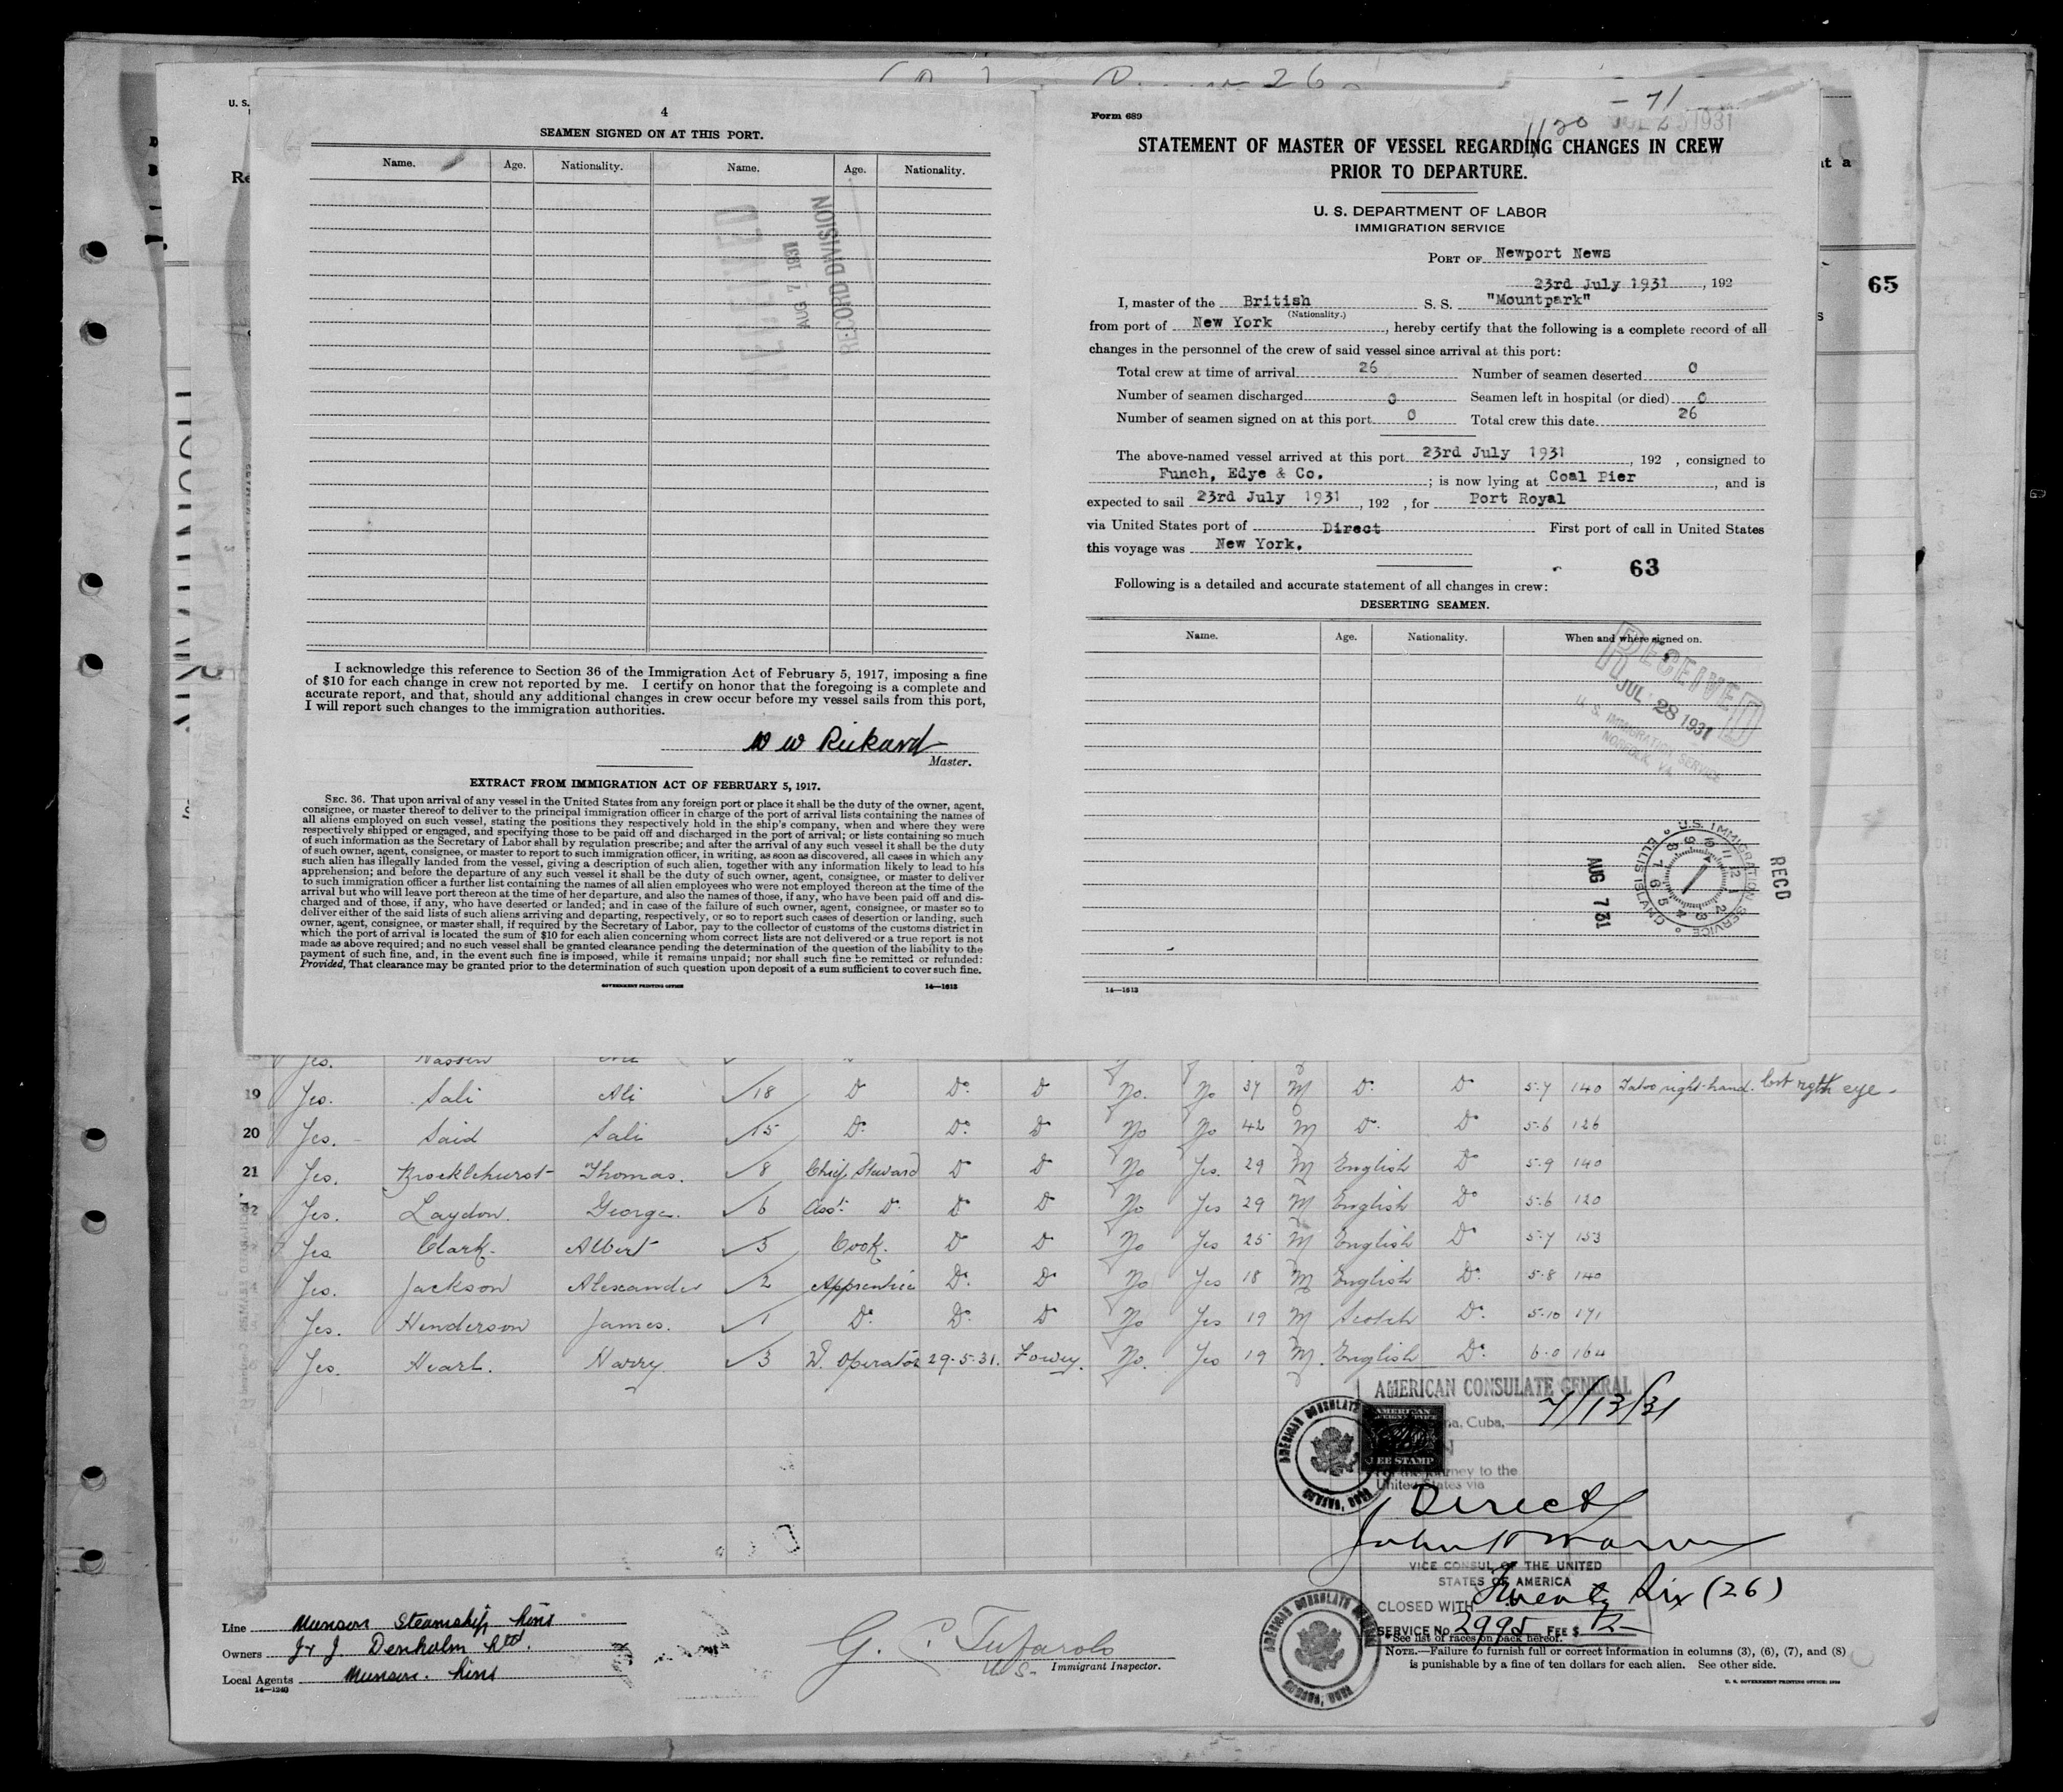 4
SEAMEN SIGNED ON AT THIS PORT.
Name. Age. Nationality. Name. Age. Nationality.
RECORD DIVISION
AUG 7 1931
I acknowledge this reference to Section 36 of the Immigration Act of February 5, 1917, imposing a fine
of $10 for each change in crew not reported by me. I certify on honor that the foregoing is a complete and
accurate report, and that, should any additional changes in crew occur before my vessel sails from this port,
I will report such changes to the immigration authorities.
W W Rickard
Master.
EXTRACT FROM IMMIGRATION ACT OF FEBRUARY 5, 1917.
SEC. 36. That upon arrival of any vessel in the United States from any foreign port or place it shall be the duty of the owner, agent,
consignee, or master thereof to deliver to the principal immigration officer in charge of the port of arrival lists containing the names of
all aliens employed on such vessel, stating the positions they respectively hold in the ship's company, when and where they were
respectively shipped or engaged, and specifying those to be paid off and discharged in the port of arrival; or lists containing so much
of such information as the Secretary of Labor shall by regulation prescribe; and after the arrival of any such vessel it shall be the duty
of such owner, agent, consignee, or master to report to such immigration officer, in writing, as soon as discovered, all cases in which any
such alien has illegally landed from the vessel, giving a description of such alien, together with any information likely to lead to his
apprehension; and before the departure of any such vessel it shall be the duty of such owner, agent, consignee, or master to deliver
to such immigration officer a further list containing the names of all alien employees who were not employed thereon at the time of the
arrival but who will leave port thereon at the time of her departure, and also the names of those, if any, who have been paid off and dis-
charged and of those, if any, who have deserted or landed; and in case of the failure of such owner, agent, consignee, or master so to
deliver either of the said lists of such aliens arriving and departing, respectively, or so to report such cases of desertion or landing, such
owner, agent, consignee, or master shall, if required by the Secretary of Labor, pay to the collector of customs of the customs district in
which the port of arrival is located the sum of $10 for each alien concerning whom correct lists are not delivered or a true report is not
made as above required; and no such vessel shall be granted clearance pending the determination of the question of the liability to the
payment of such fine, and, in the event such fine is imposed, while it remains unpaid; nor shall such fine be remitted or refunded:
Provided, That clearance may be granted prior to the determination of such question upon deposit of a sum sufficient to cover such fine.
GOVERNMENT PRINTING OFFICE 14—1613
Form 689
STATEMENT OF MASTER OF VESSEL REGARDING CHANGES IN CREW
PRIOR TO DEPARTURE.
U. S. DEPARTMENT OF LABOR
IMMIGRATION SERVICE
PORT OF Newport News
23rd July 1931, 192
I, master of the British S. S. "Mountpark"
(Nationality.)
from port of New York, hereby certify that the following is a complete record of all
changes in the personnel of the crew of said vessel since arrival at this port:
Total crew at time of arrival 26 Number of seamen deserted 0
Number of seamen discharged 0 Seamen left in hospital (or died) 0
Number of seamen signed on at this port 0 Total crew this date 26
The above-named vessel arrived at this port 23rd July 1931, 192 , consigned to
Funch, Edye & Co. ; is now lying at Coal Pier, and is
expected to sail 23rd July 1931, 192 , for Port Royal
via United States port of Direct First port of call in United States
this voyage was New York.
63
Following is a detailed and accurate statement of all changes in crew:
DESERTING SEAMEN.
Name. Age. Nationality. When and where signed on.
RECEIVED
JUL 28 1931
U. S. IMMIGRATION SERVICE
NORFOLK, VA
U.S. IMMIGRATION SERVICE ELLIS ISLAND
RECD
AUG 7 31
14—1613
65
Yes. Nassen
19 Yes. Sali Ali 18 D D° D No. No 37 M D° D° 5-7 140 Tatoo right hand. lost right eye
20 Yes. Said Sali 15 D° D° D No No 42 M D° D° 5-6 126
21 Yes. Brocklehurst Thomas. 8 Chief Steward D° D No Yes. 29 M English D° 5-9 140
Yes. Laydon. George. 6 Asst. D° D° D No Yes 29 M English D° 5-6 120
Yes Clark. Albert 3 Cook. D D No Yes 25 M English D° 5-7 153
Yes. Jackson Alexander 2 Apprentice D° D° No Yes 18 M English D° 5-8 140
Yes. Henderson James. 1 D° D° D No Yes 19 M Scotch D° 5-10 171
Yes. Hearl. Harry 3 W. Operator 29-5-31. Fowey. No. Yes 19 M. English D° 6-0 164
AMERICAN CONSULATE GENERAL
na, Cuba, 7/13/31
AMERICAN
FEE STAMP
ney to the
United States via
Direct
VICE CONSUL OF THE UNITED
STATES OF AMERICA
CLOSED WITH Twenty Six (26)
SERVICE No. 2995 FEE $
Line Munson Steamship Line
Owners J & J Denholm Ltd.
Local Agents Munson Line
14—1240
U.S. Immigrant Inspector.
* See list of races on back hereof.
NOTE.—Failure to furnish full or correct information in columns (3), (6), (7), and (8)
is punishable by a fine of ten dollars for each alien. See other side.